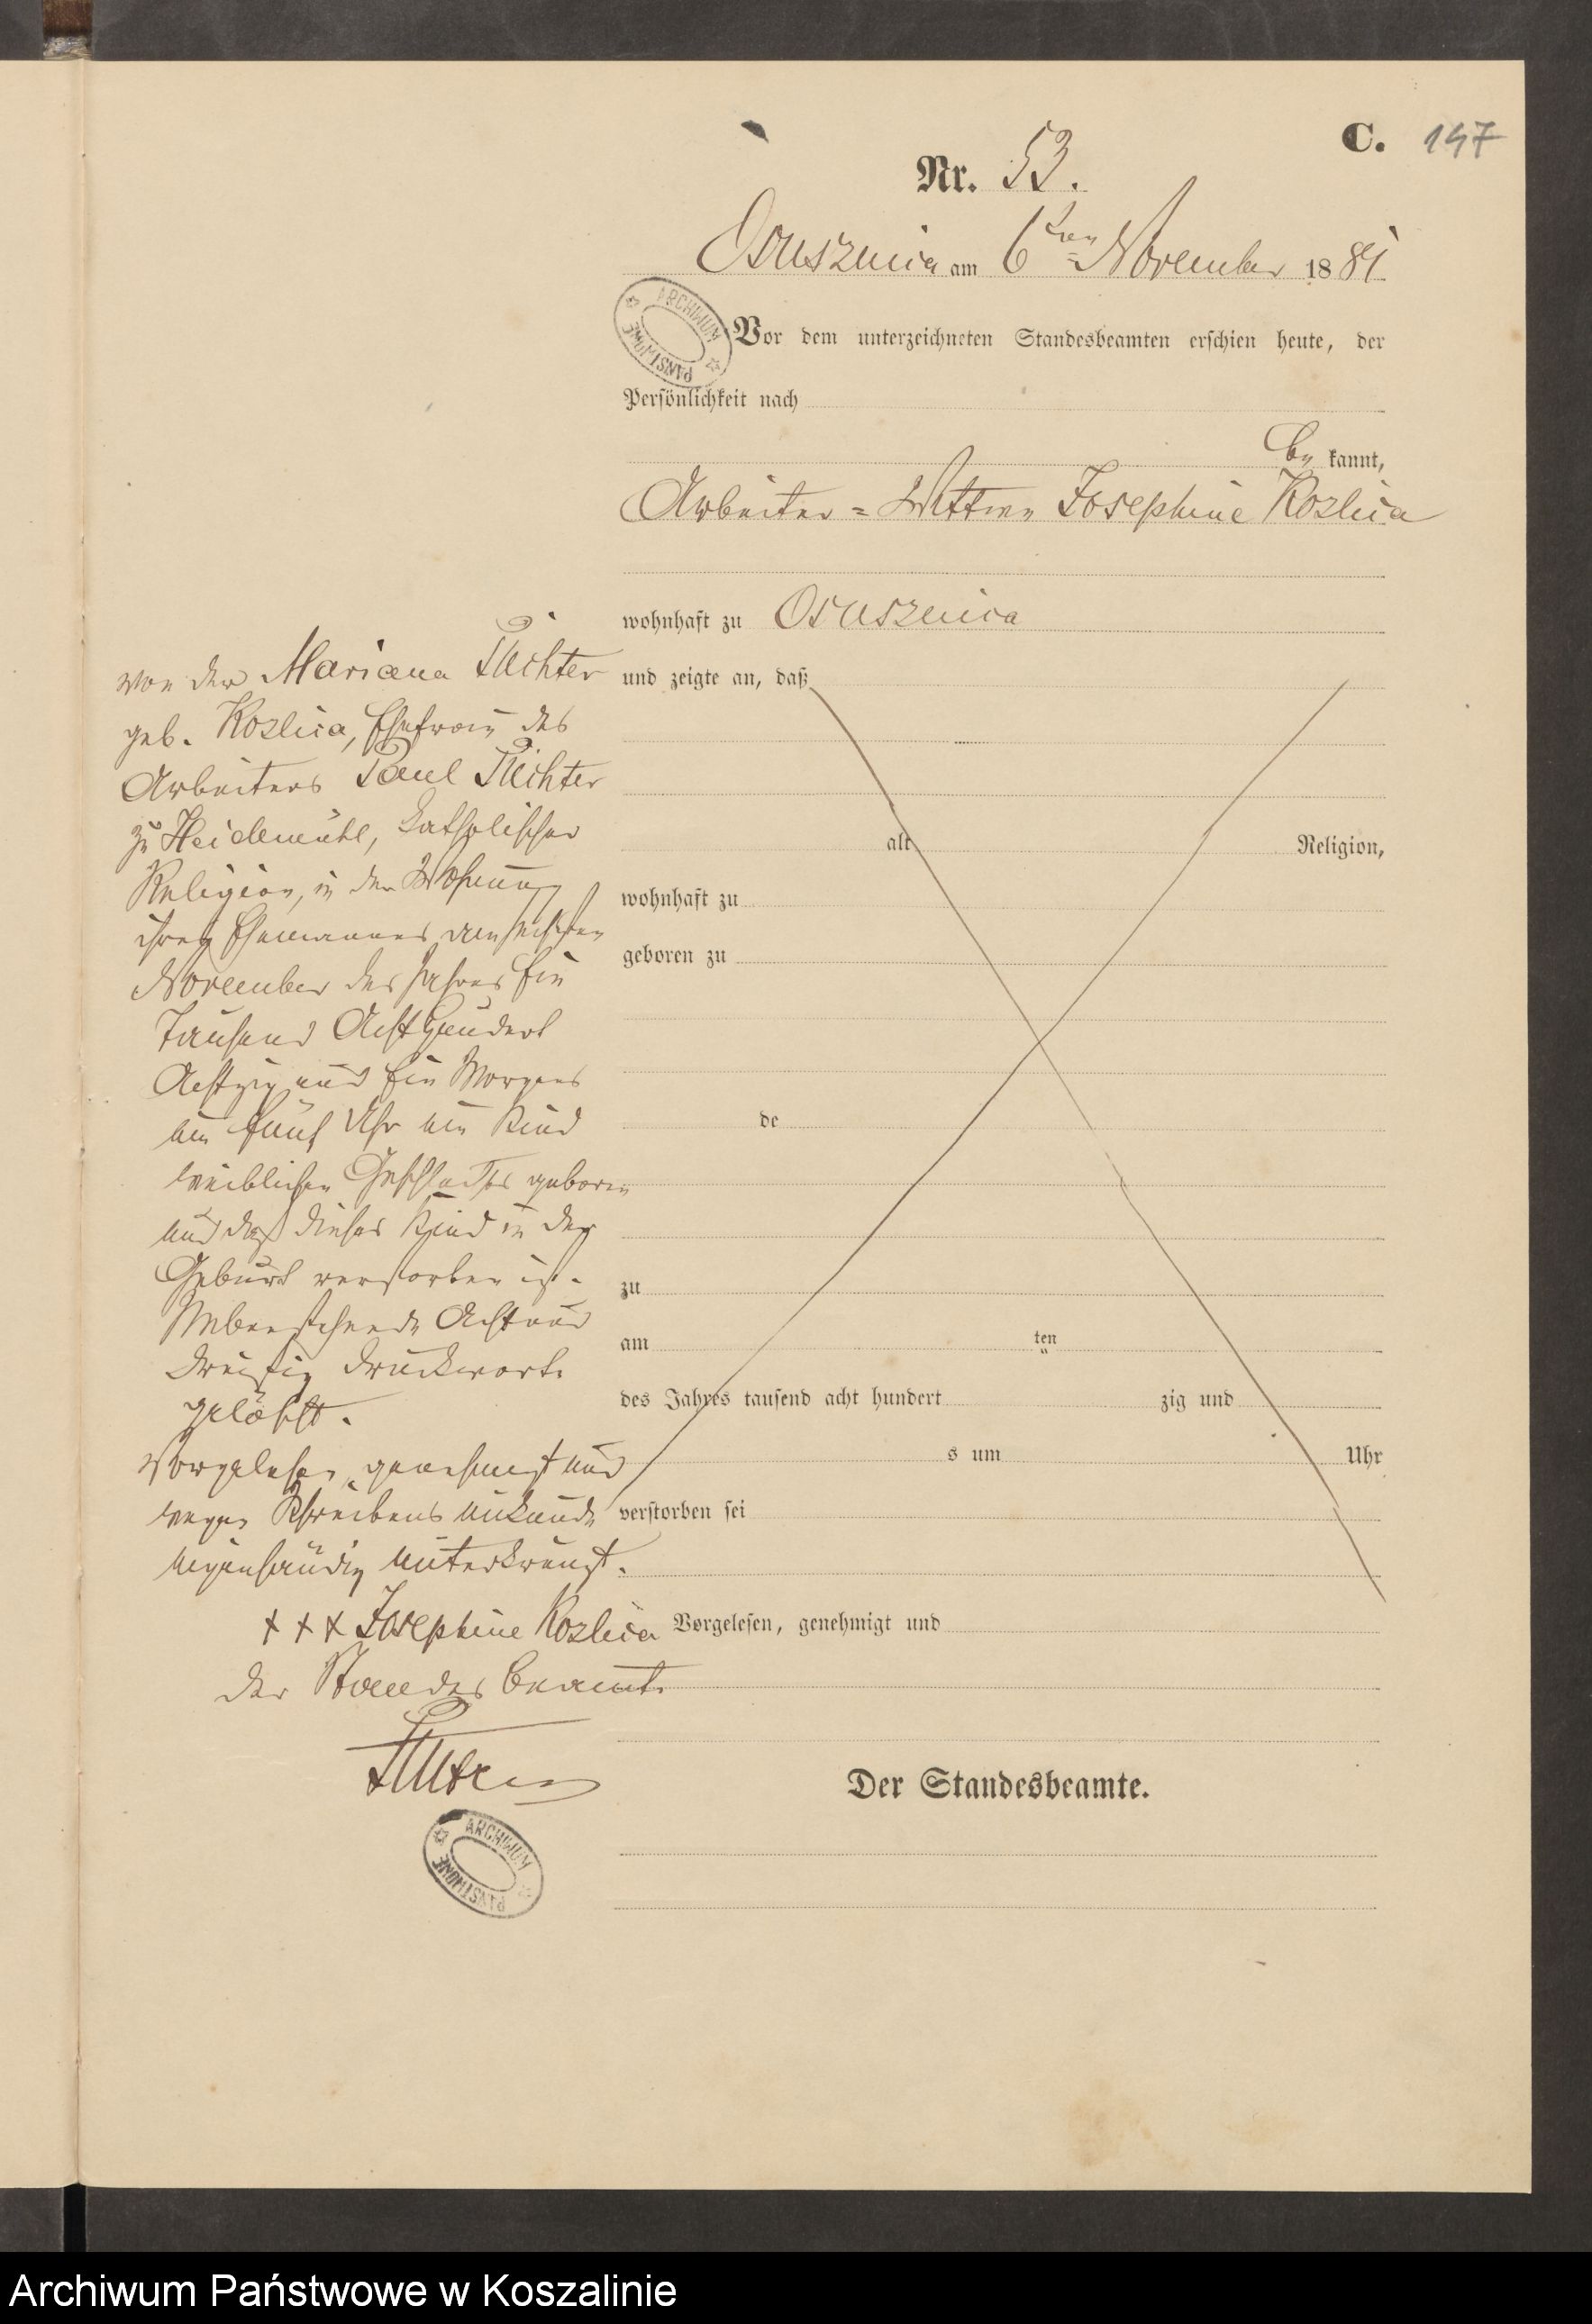 C. 147
Nr. 53.
Ossusznica am 6ten November 1881
ARCHIWUM PAŃSTWOWE
Vor dem unterzeichneten Standesbeamten erschien heute, der
Persönlichkeit nach
be kannt,
Arbeiter-Wittwe Josephine Kozlica
wohnhaft zu
und zeigte an, daß
von der Mariana Richter
geb. Kozlica, Ehefrau des
Arbeiters Paul Richter
zu Heidemühl, katholischer
Religion, in der Wohnung
ihres Ehemannes am sechsten
November des Jahres Ein
Tausend Acht Hundert
Achtzig und Ein Morgens
um fünf Uhr ein Kind
weiblichen Geschlechts geboren
und daß dieses Kind in der
Geburt verstorben ist.
Nebenstehende Acht und
dreißig Druckworte
gelöscht.
Vorgelesen, genehmigt und
wegen Schreibens unkunde
eigenhändig unterkreuzt.
+++ Josephine Kozlica
Der Standesbeamte
alt Religion,
wohnhaft zu
geboren zu
de
zu
am ten
des Jahres tausend acht hundert zig und
s um Uhr
verstorben sei
Vorgelesen, genehmigt und
Der Standesbeamte.
ARCHIWUM PAŃSTWOWE
Archiwum Państwowe w Koszalinie